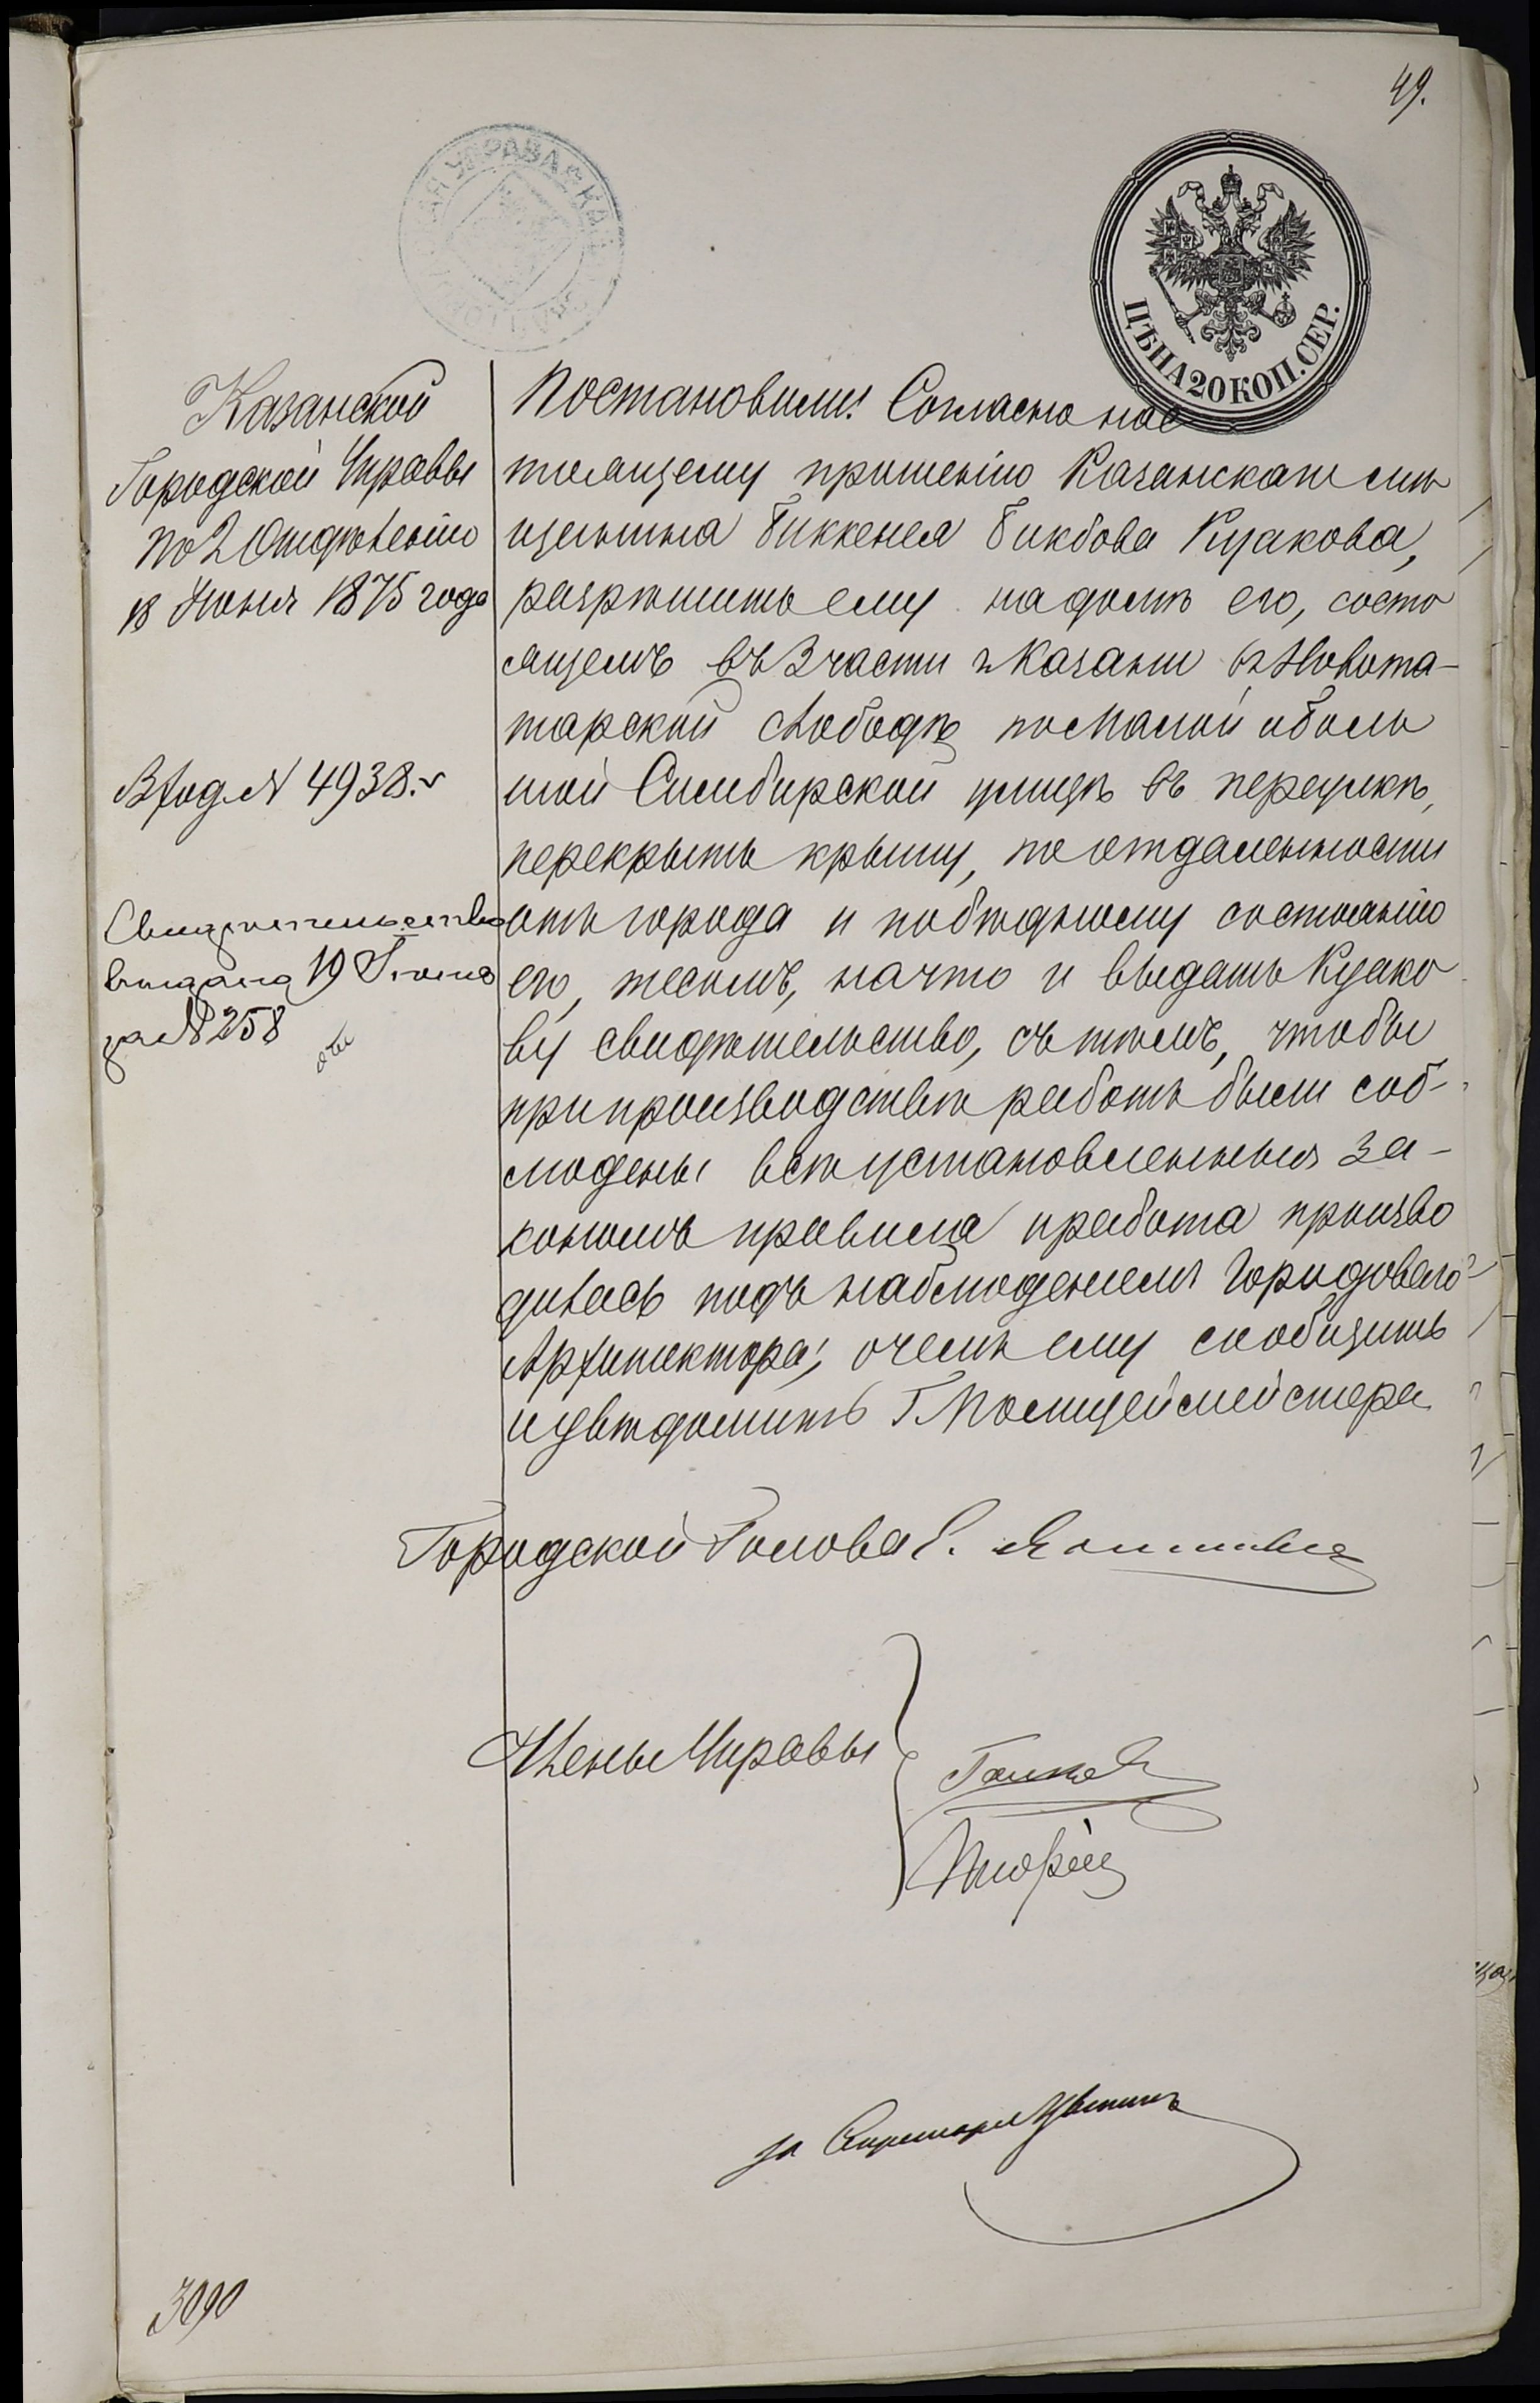 49.
ЦѢНА 20 КОП. СЕР.
Казанской
Городской Управы
По 2 Отдѣленію
18 Іюня 1875 года
Вход. № 4938.
Свидѣтельство
выдано 19 Іюня
за № 258
Постановили: Согласно нас
тоящему прошенію Казанскаго мѣ
щанина Биккенея Бикбова Кулакова,
разрѣшить ему на домѣ его, состо
ящемъ въ 3 части г. Казани въ Новота-
тарской слободѣ по Малой и боль
шой Симбирской улицѣ въ переулкѣ,
перекрыть крышу, по отдаленности
отъ города и по бѣдному состоянію
его, тесомъ, на что и выдать Кулако
ву свидѣтельство, съ тѣмъ, чтобы
при производствѣ работъ были соб-
людены всѣ установленныя за-
кономъ правила и работа произво
дилась подъ наблюденіемъ Городоваго
Архитектора; о чемъ ему сообщить
и увѣдомить Г. Полицеймейстера
Городской Голова Е.
Члены Управы
за Секретаря
3090